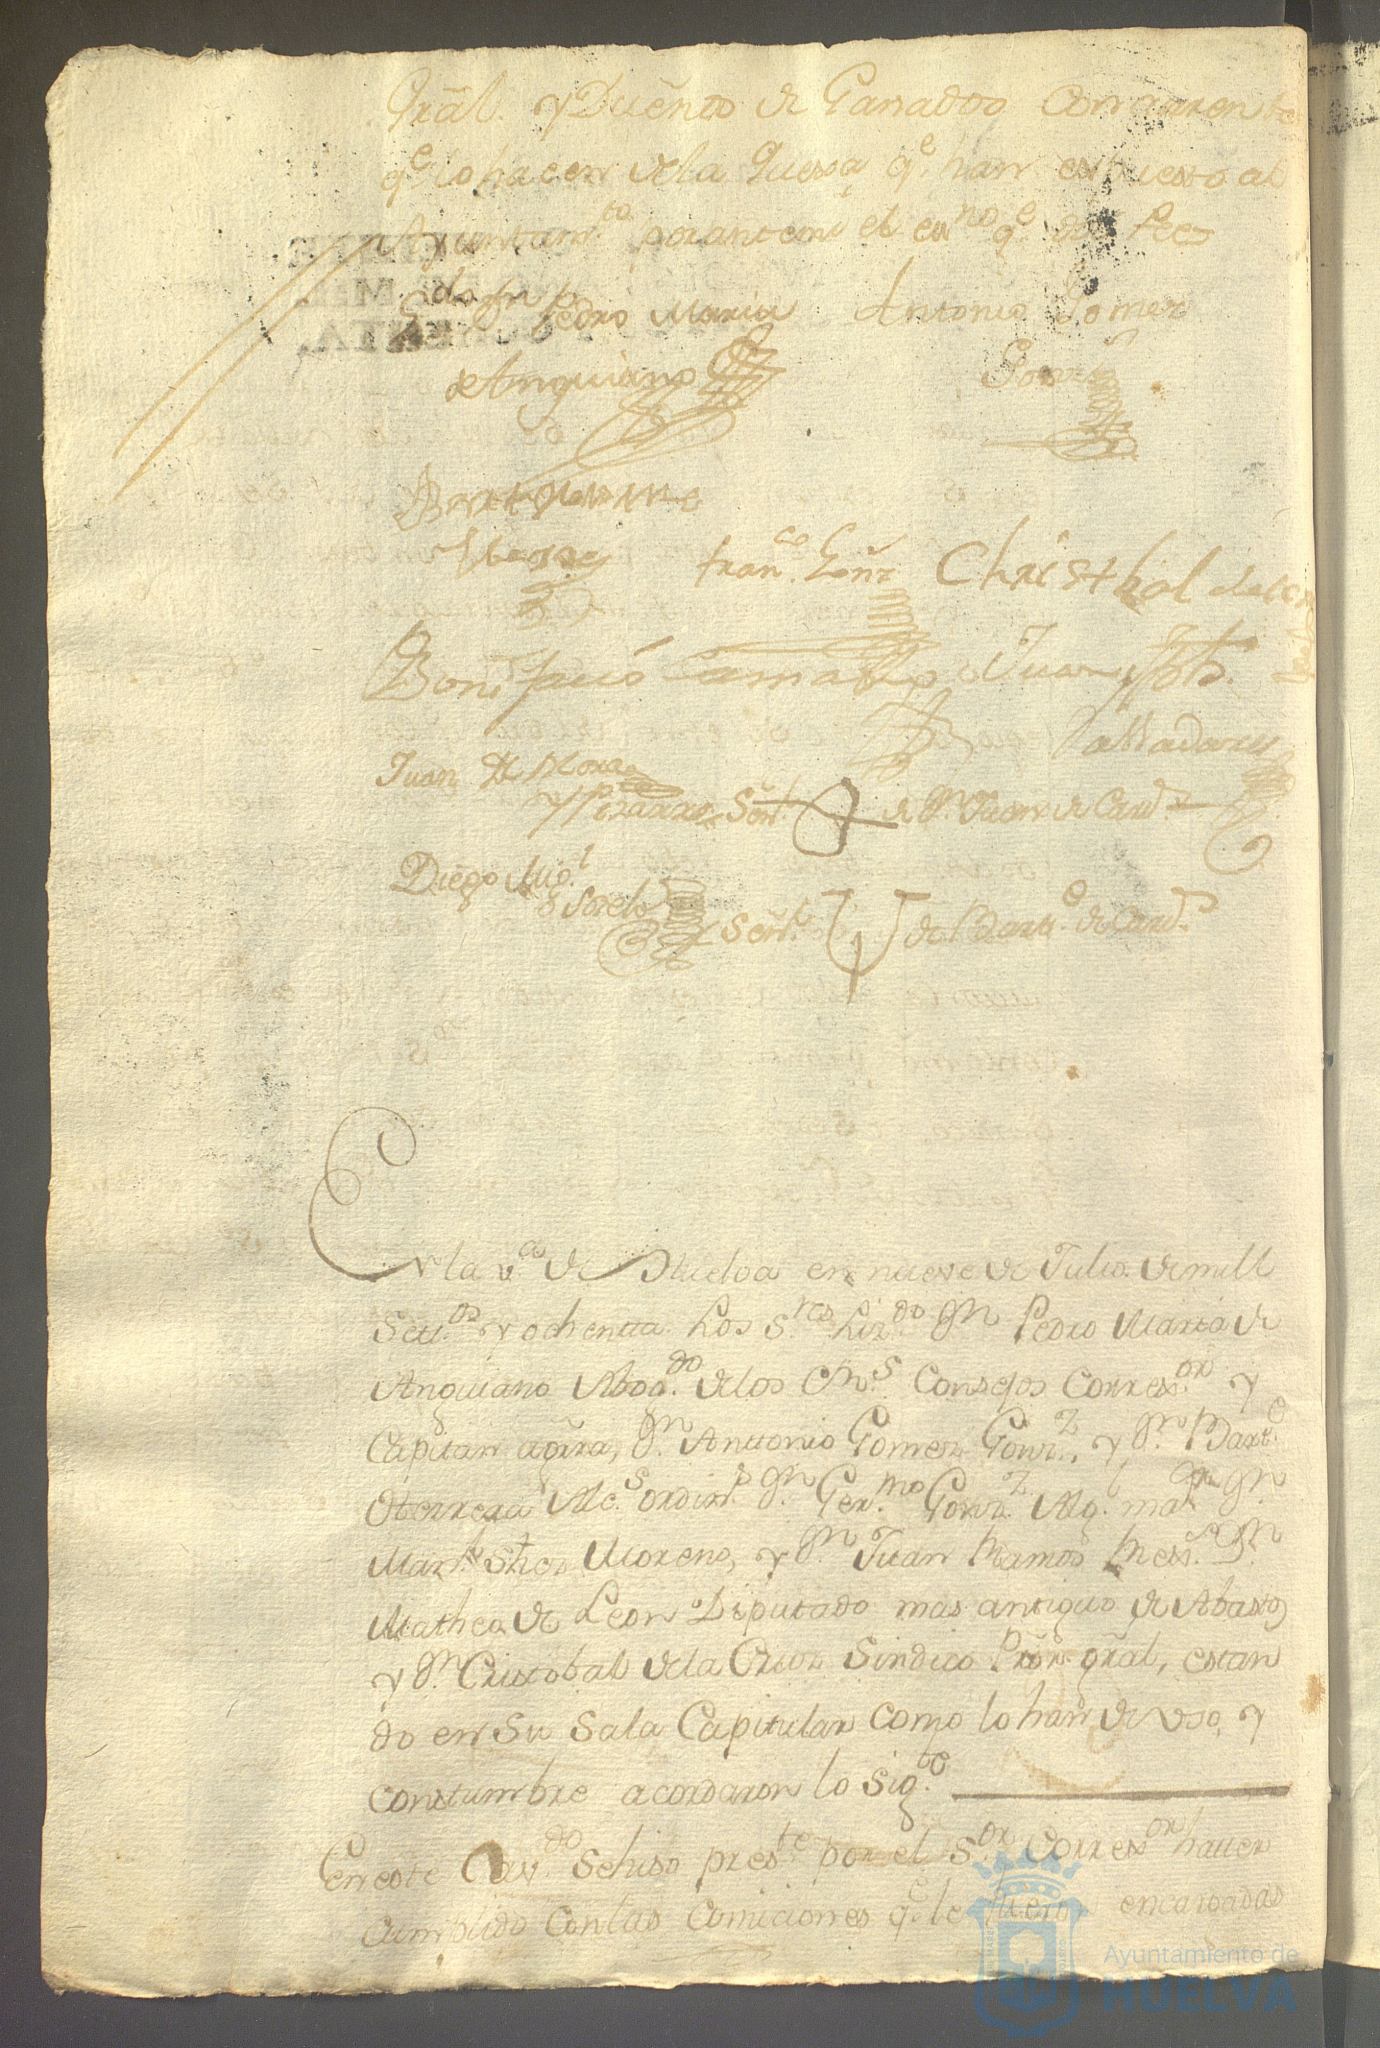 Grãl. y Dueños de Ganados Concurrente
qe. lo hacen de la Quexa qe. han expuesto al
Ayuntamto. por ante mi el esno. qe. doy fee
Lizdo. Dn. Pedro Maria Antonio Gomez
de Anguiano Gonz
Bartolome
Franco. Christhol dela Cruz
Bonifacio Camacho Juan
Valladares
Juan de Mora
y Pizarro Señl. de Dn. Juan de Card.
Diego Migl.
Sorelo Señl. de Barte. de Card.
En la va. de Huelva en nueve de Julio de mill
Setos. y ochentta. Los Sres. Lizdo. Dn. Pedro Maria de
Anguiano Abogdo. de los Rs. Consejos Correxor. y
Capitan a grra, Dn. Anttonio Gomez Gonz., y Dn. Barte.
Herrera Alcs. ordins. Dn. Germo. Gonz. Alg. mor. Dn.
Martn. Shes. Moreno, y Dn. Juan Ramos Dn.
Matheo de Leon Diputado mas antiguo de Abastos
y Dn. Cristobal de la Cruz Sindico Prõr grãl, estan
do en su Sala Capitular como lo han de uso, y
constumbre acordaron lo sigte.
En este Cavdo. se hiso preste. por el Sor. Correxor. haver
cumplido con las Comiciones qe. le fueron encargadas
Ayuntamiento de
HUELVA